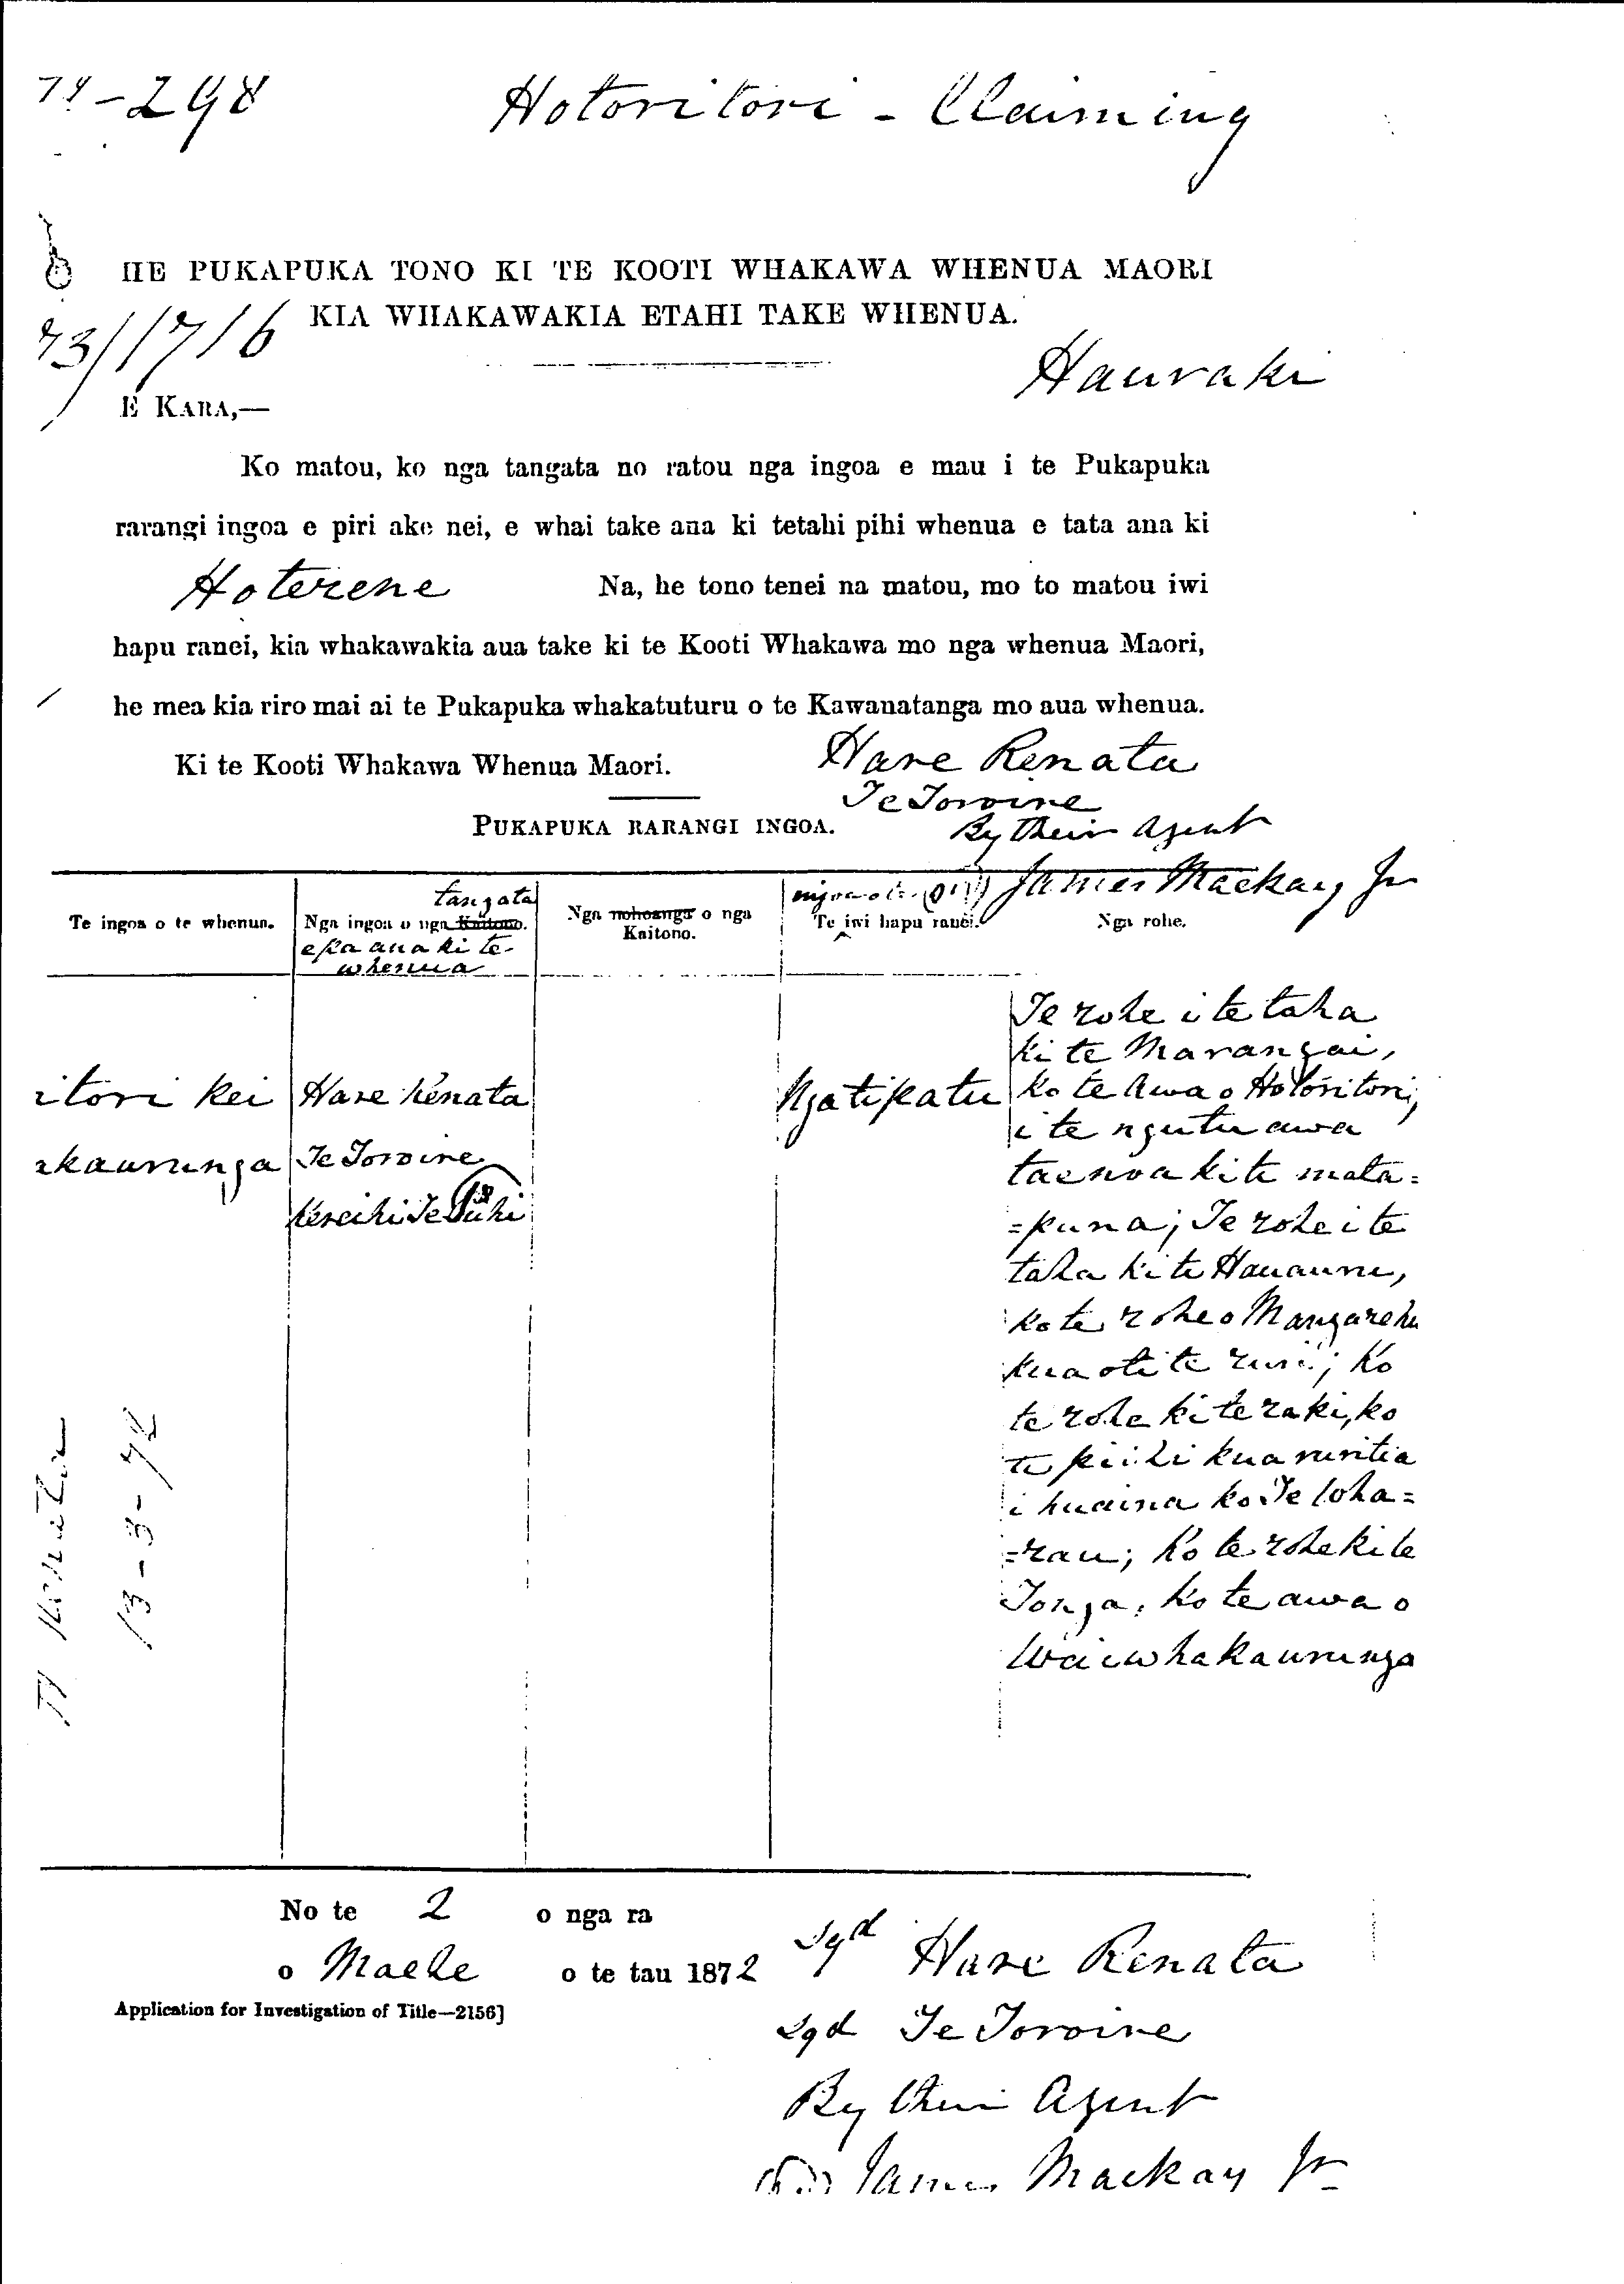 -298 Hotoritori - Claiming
HE PUKAPUKA TONO KI TE KOOTI WHAKAWA WHENUA MAORI
KIA WHAKAWAKIA ETAHI TAKE WHENUA.
73/1716
Hauraki
E KARA,—
Ko matou, ko nga tangata no ratou nga ingoa e mau i te Pukapuka
rarangi ingoa e piri ake nei, e whai take ana ki tetahi pihi whenua e tata ana ki
Hoterene Na, he tono tenei na matou, mo to matou iwi
hapu ranei, kia whakawakia aua take ki te Kooti Whakawa mo nga whenua Maori,
he mea kia riro mai ai te Pukapuka whakatuturu o te Kawanatanga mo aua whenua.
Ki te Kooti Whakawa Whenua Maori.
Hare Renata
Te Toroire
By their Agent
James Mackay Jr
PUKAPUKA RARANGI INGOA.
Te ingoa o te whenua.
Nga ingoa o nga Kaitono.
tangata
e pa ana ki te
whenua
Nga nohoanga o nga
Kaitono.
Te iwi hapu ranei.
Nga rohe.
itori kei
akaurunga
Hare Renata
Te Toroire
Kereihi Te
Ngatipatu
Te rohe i te taha
ki te Marangai,
ko te Awa o Hotoritori,
i te ngutu awa
tae noa ki te mata=
=puna; Te rohe i te
taha ki te Hauauru,
ko te rohe o Mangarehu
kua oti te ruri; Ko
te rohe ki te raki, ko
te piihi kua ruritia
i huaina ko Te Woha=
=rau; Ko te rohe ki te
Tonga, ko te awa o
Waiwhakaurunga
H Renata
13-3-72
No te 2 o nga ra
o Maehe o te tau 1872
Application for Investigation of Title—2156]
Sgd Hare Renata
Sgd Te Toroire
By their Agent
James Mackay Jr